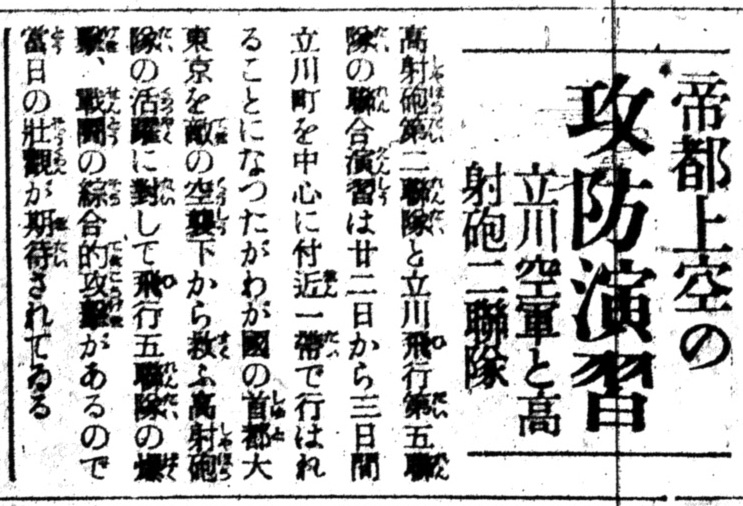 帝都上空の
攻防演習
立川空軍と高
射砲二聯隊
高射砲第二聯隊と立川飛行第五聯
隊の聯合演習は廿二日から三日間
立川町を中心に付近一帶で行はれ
ることになつたがわが國の首都大
東京を敵の空襲下から救ふ高射砲
隊の活躍に對して飛行五聯隊の爆
擊、戰鬪の綜合的攻擊があるので
當日の壯觀が期待されてゐる